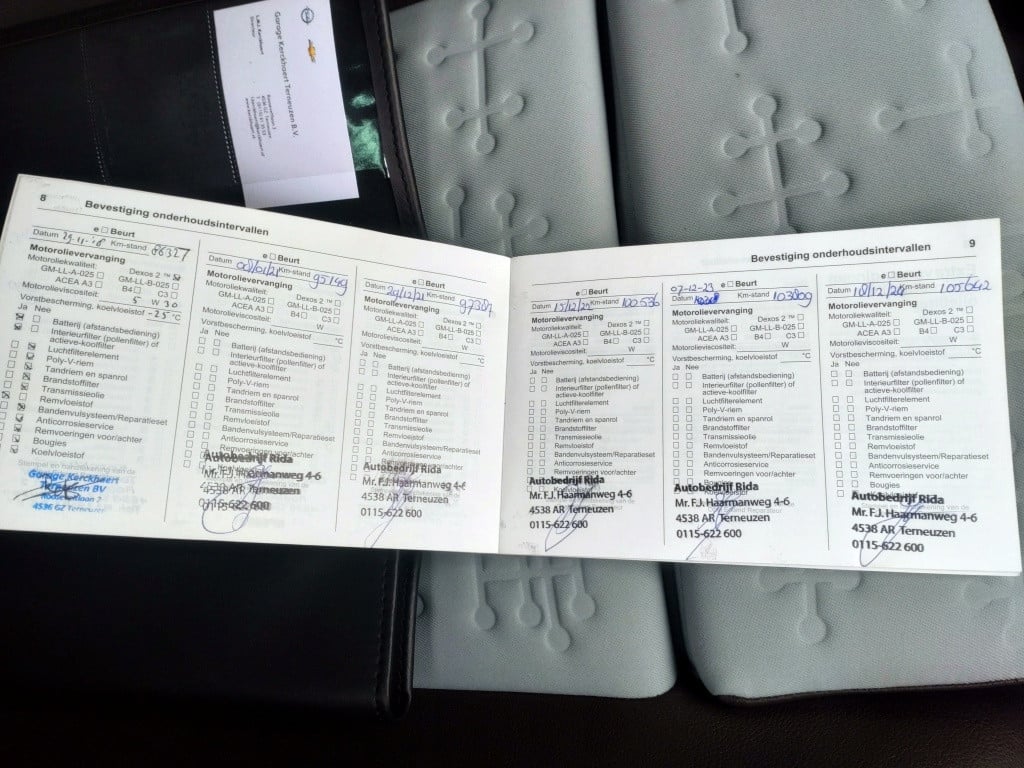 Garage Kerckhaert Terneuzen B.V.
8
Bevestiging onderhoudsintervallen
e □ Beurt
Datum 29-11-'18 Km-stand 86327
Motorolievervanging
Motorkwaliteit:
GM-LL-A-025 □ Dexos 2 ™ ☒
ACEA A3 □ GM-LL-B-025 □
B4 □ C3 □
Motorolieviscositeit: 5 W 30
Vorstbescherming, koelvloeistof -25 °C
Ja Nee
Batterij (afstandsbediening)
Interieurfilter (pollenfilter) of
actieve-koolfilter
Luchtfilterelement
Poly-V-riem
Tandriem en spanrol
Brandstoffilter
Transmissieolie
Remvloeistof
Bandenvulsysteem/Reparatieset
Anticorrosieservice
Remvoeringen voor/achter
Bougies
Koelvloeistof
Garage Kerckhaert
Terneuzen BV
4536 GZ Terneuzen
e □ Beurt
Datum 08/01/21 Km-stand 95159
Motorolievervanging
Motorkwaliteit:
GM-LL-A-025 □ Dexos 2 ™ □
ACEA A3 □ GM-LL-B-025 □
B4 □ C3 □
Motorolieviscositeit: W
Vorstbescherming, koelvloeistof °C
Ja Nee
Batterij (afstandsbediening)
Interieurfilter (pollenfilter) of
actieve-koolfilter
Luchtfilterelement
Poly-V-riem
Tandriem en spanrol
Brandstoffilter
Transmissieolie
Remvloeistof
Bandenvulsysteem/Reparatieset
Anticorrosieservice
Remvoeringen voor/achter
Autobedrijf Rida
Mr. F.J. Haarmanweg 4-6
4538 AR Terneuzen
0115-622 600
e □ Beurt
Datum 29/12/21 Km-stand 97387
Motorolievervanging
Motorkwaliteit:
GM-LL-A-025 □ Dexos 2 ™ □
ACEA A3 □ GM-LL-B-025 □
B4 □ C3 □
Motorolieviscositeit: W
Vorstbescherming, koelvloeistof °C
Ja Nee
Batterij (afstandsbediening)
Interieurfilter (pollenfilter) of
actieve-koolfilter
Luchtfilterelement
Poly-V-riem
Tandriem en spanrol
Brandstoffilter
Transmissieolie
Remvloeistof
Bandenvulsysteem/Reparatieset
Anticorrosieservice
Remvoeringen voor/achter
Autobedrijf Rida
Mr. F.J. Haarmanweg 4-6
4538 AR Terneuzen
0115-622 600
Bevestiging onderhoudsintervallen
9
e □ Beurt
Datum 15/12/ Km-stand 100536
Motorolievervanging
Motorkwaliteit:
GM-LL-A-025 □ Dexos 2 ™ □
ACEA A3 □ GM-LL-B-025 □
B4 □ C3 □
Motorolieviscositeit: W
Vorstbescherming, koelvloeistof °C
Ja Nee
Batterij (afstandsbediening)
Interieurfilter (pollenfilter) of
actieve-koolfilter
Luchtfilterelement
Poly-V-riem
Tandriem en spanrol
Brandstoffilter
Transmissieolie
Remvloeistof
Bandenvulsysteem/Reparatieset
Anticorrosieservice
Remvoeringen voor/achter
Autobedrijf Rida
Mr. F.J. Haarmanweg 4-6
4538 AR Terneuzen
0115-622 600
e □ Beurt
07-12-23
Datum Km-stand 103809
Motorolievervanging
Motorkwaliteit:
GM-LL-A-025 □ Dexos 2 ™ □
ACEA A3 □ GM-LL-B-025 □
B4 □ C3 □
Motorolieviscositeit: W
Vorstbescherming, koelvloeistof °C
Ja Nee
Batterij (afstandsbediening)
Interieurfilter (pollenfilter) of
actieve-koolfilter
Luchtfilterelement
Poly-V-riem
Tandriem en spanrol
Brandstoffilter
Transmissieolie
Remvloeistof
Bandenvulsysteem/Reparatieset
Anticorrosieservice
Remvoeringen voor/achter
Bougies
Autobedrijf Rida
Mr. F.J. Haarmanweg 4-6
4538 AR Terneuzen
0115-622 600
e □ Beurt
Datum 18/12/24 Km-stand 105642
Motorolievervanging
Motorkwaliteit:
GM-LL-A-025 □ Dexos 2 ™ □
ACEA A3 □ GM-LL-B-025 □
B4 □ C3 □
Motorolieviscositeit: W
Vorstbescherming, koelvloeistof °C
Ja Nee
Batterij (afstandsbediening)
Interieurfilter (pollenfilter) of
actieve-koolfilter
Luchtfilterelement
Poly-V-riem
Tandriem en spanrol
Brandstoffilter
Transmissieolie
Remvloeistof
Bandenvulsysteem/Reparatieset
Anticorrosieservice
Remvoeringen voor/achter
Bougies
Autobedrijf Rida
Mr. F.J. Haarmanweg 4-6
4538 AR Terneuzen
0115-622 600